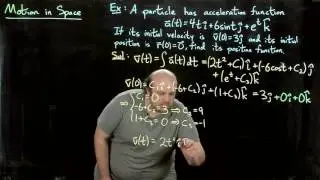 Motion in Space
Ex: A particle has acceleration function
a(t) = 4t î + 6sint ĵ + eᵗ k̂
If its initial velocity is v(0) = 3ĵ and its initial
position is r(0) = 0, find its position function.
Sol: v(t) = ∫ a(t) dt = (2t² + C₁) î + (-6cost + C₂) ĵ
+ (eᵗ + C₃) k̂
v(0) = C₁ î + (-6 + C₂) ĵ + (1 + C₃) k̂ = 3ĵ + 0î + 0k̂
⇒ C₁ = 0
-6 + C₂ = 3 ⇒ C₂ = 9
1 + C₃ = 0 ⇒ C₃ = -1
v(t) = 2t² î